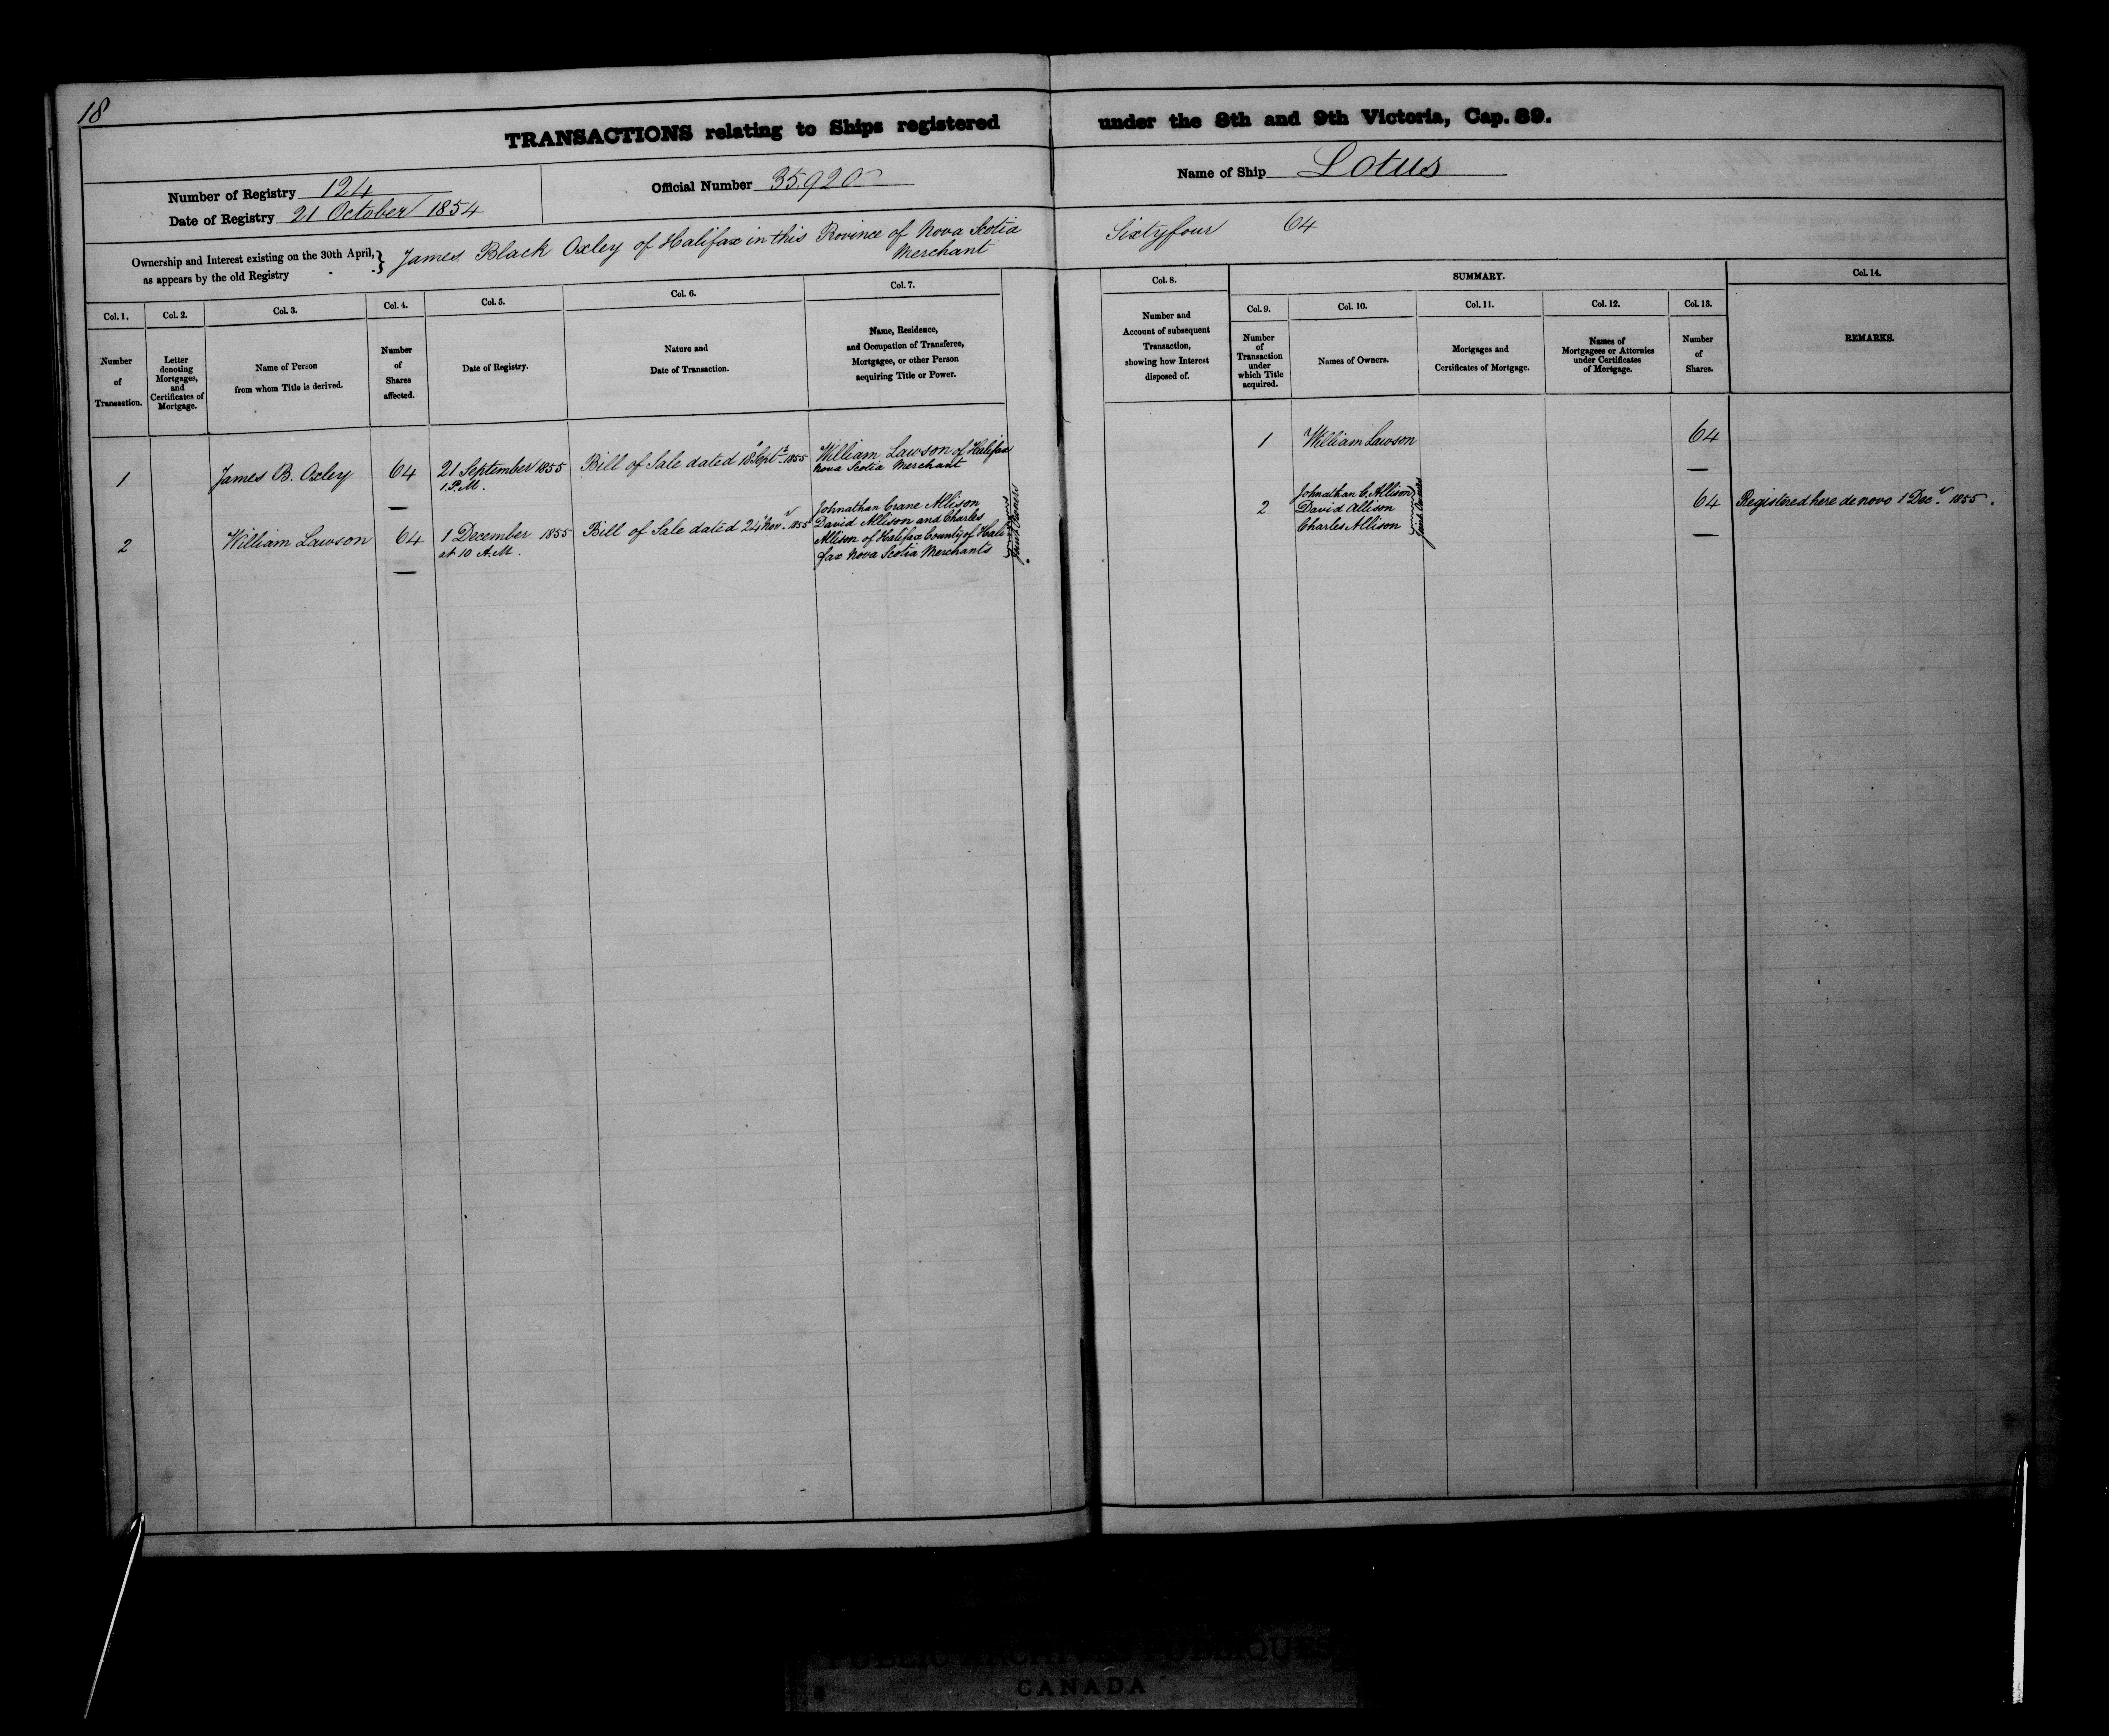 18
TRANSACTIONS relating to Ships registered under the 8th and 9th Victoria, Cap. 89.
Number of Registry 124
Date of Registry 21 October 1854
Official Number 35.920
Name of Ship Lotus
Ownership and Interest existing on the 30th April,
as appears by the old Registry
James Black Oxley of Halifax in this Province of Nova Scotia
Merchant
Sixtyfour 64
Col. 1.
Number
of
Transaction.
Col. 2.
Letter
denoting
Mortgages,
and
Certificates of
Mortgage.
Col. 3.
Name of Person
from whom Title is derived.
Col. 4.
Number
of
Shares
affected.
Col. 5.
Date of Registry.
Col. 6.
Nature and
Date of Transaction.
Col. 7.
Name, Residence,
and Occupation of Transferee,
Mortgagee, or other Person
acquiring Title or Power.
Col. 8.
Number and
Account of subsequent
Transaction,
showing how Interest
disposed of.
SUMMARY.
Col. 9.
Number
of
Transaction
under
which Title
acquired.
Col. 10.
Names of Owners.
Col. 11.
Mortgages and
Certificates of Mortgage.
Col. 12.
Names of
Mortgagees or Attornies
under Certificates
of Mortgage.
Col. 13.
Number
of
Shares.
Col. 14.
REMARKS.
1
James B. Oxley
64
21 September 1855
1. P.M.
Bill of Sale dated 18 Septr 1855
William Lawson of Halifax
Nova Scotia Merchant
1
William Lawson
64
2
William Lawson
64
1 December 1855
at 10 A.M.
Bill of Sale dated 24 Novr 1855
Johnathan Crane Allison
David Allison and Charles
Allison of Halifax County of Hali
fax Nova Scotia Merchants
Joint Owners
2
Johnathan C. Allison
David Allison
Charles Allison
Joint Owners
64
Registered here de novo 1 Decr 1855.
PUBLIC ARCHIVES PUBLIQUES
CANADA